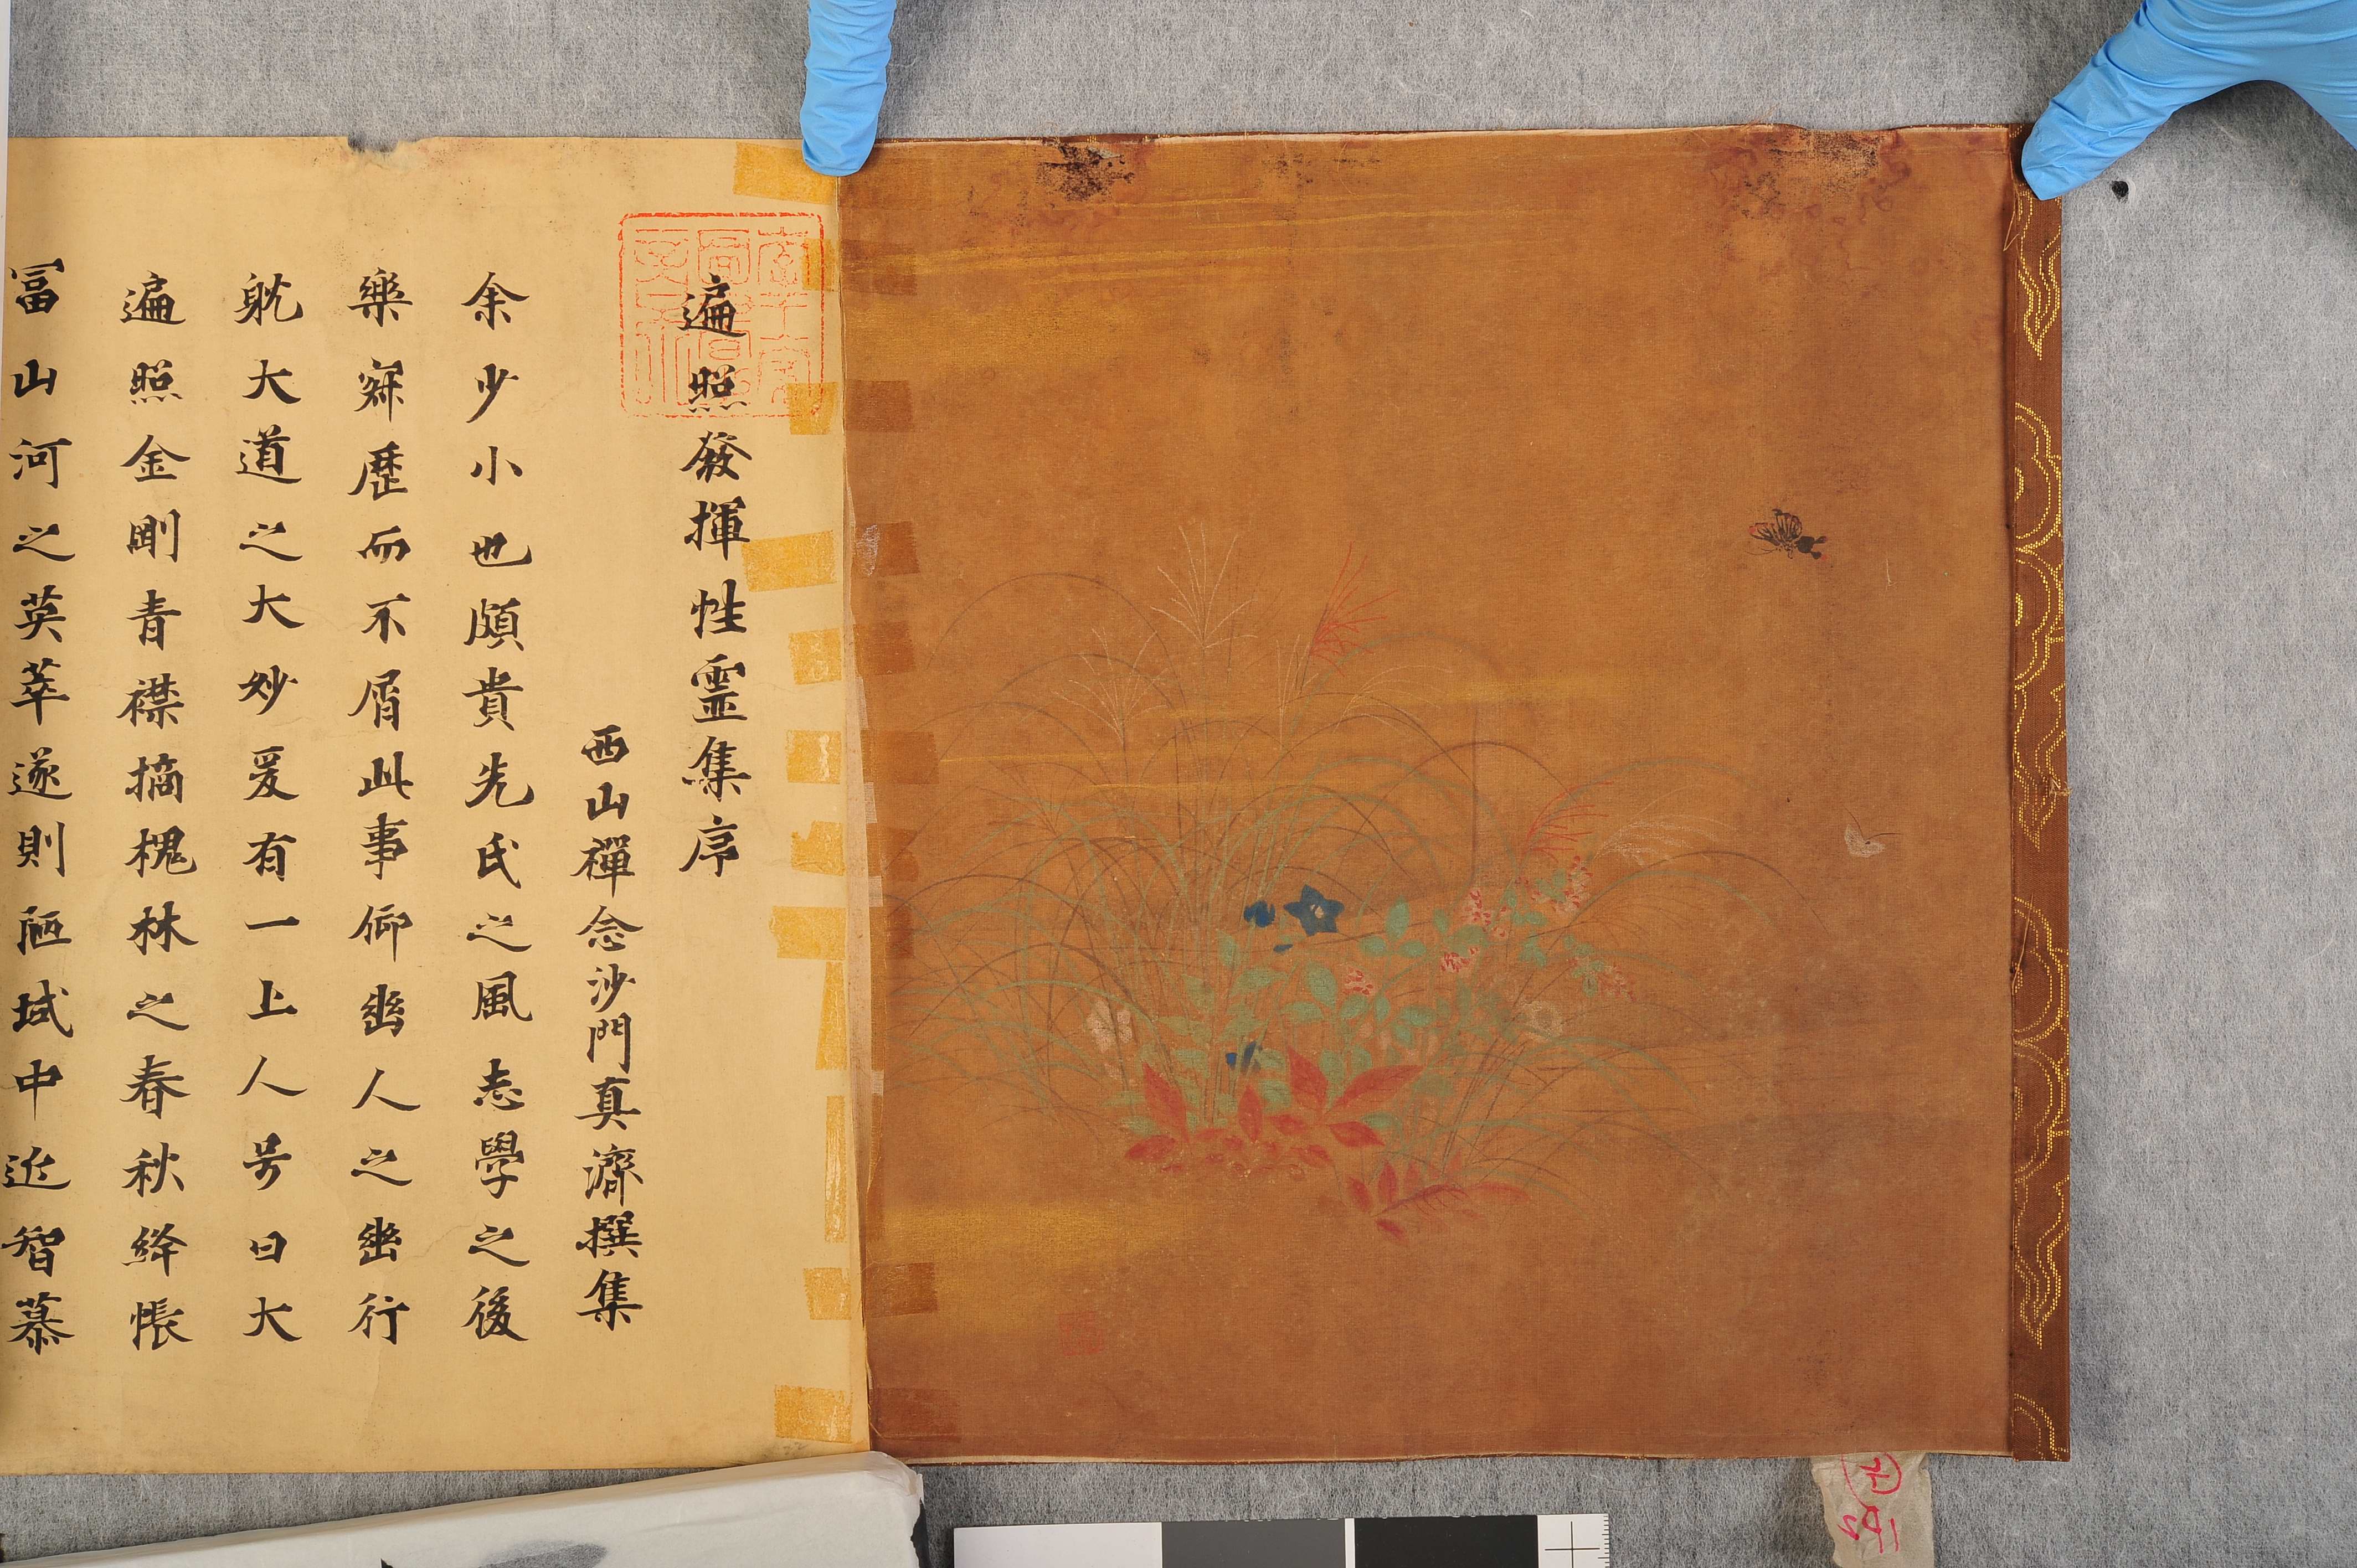 遍照發揮性霊集序
西山禪念沙門真濟撰集
余少小也頗貴先氏之風志學之後
樂寂歷而不屑此事仰幽人之幽行
躭大道之大妙爰有一上人号曰大
遍照金剛青襟摘槐林之春秋絳帳
冨山河之英萃遂則陋域中近智慕